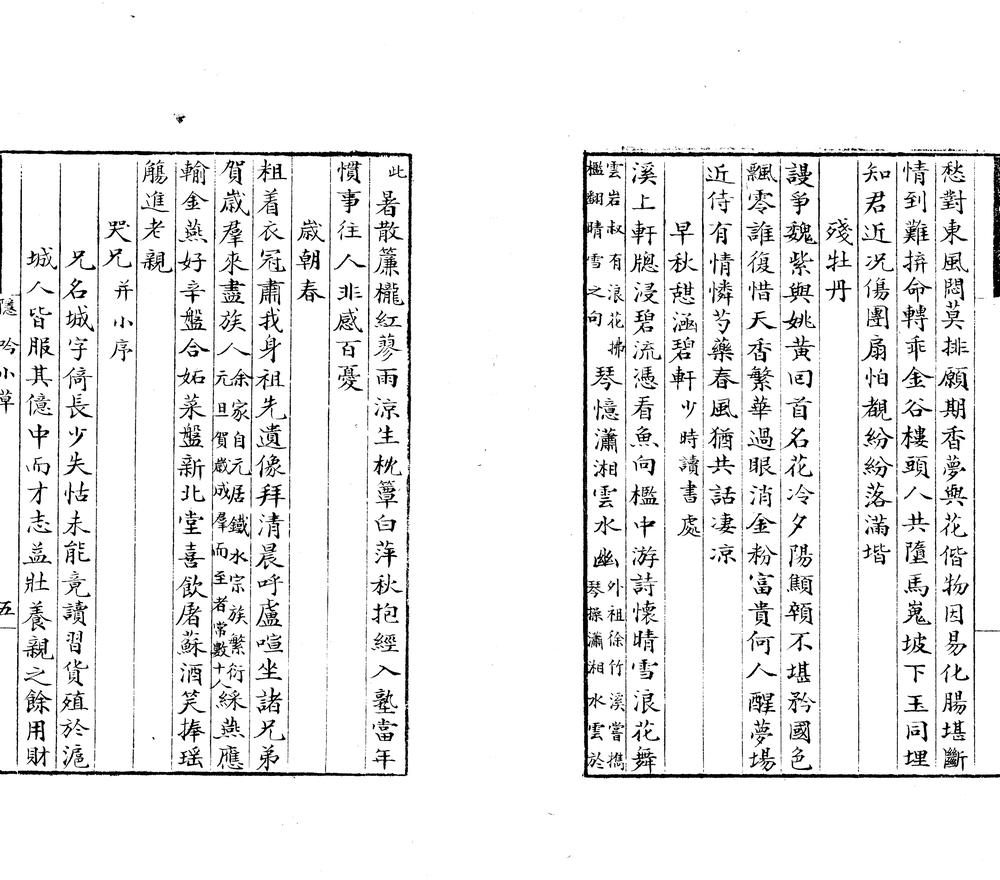 愁對東風悶莫排願期香夢與花偕物因易化腸堪斷
情到難拚命轉乖金谷樓頭人共墮馬嵬坡下玉同埋
知君近况傷團扇怕覩紛紛落滿堦
殘牡丹
謾爭魏紫與姚黃回首名花冷夕陽顦顇不堪矜國色
飄零誰復惜天香繁華過眼消金粉富貴何人醒夢場
近侍有情憐芍藥春風猶共話凄凉
早秋憇涵碧軒少時讀書處
溪上軒牕浸碧流憑看魚向檻中游詩懷晴雪浪花舞
雲岩叔有浪花拂檻翻晴雪之句琴憶瀟湘雲水幽外祖徐竹溪嘗携琴操瀟湘水雲於
此暑散簾櫳紅蓼雨涼生枕簟白萍秋抱經入塾當年
慣事往人非感百憂
歲朝春
粗着衣冠肅我身祖先遺像拜清晨呼盧喧坐諸兄弟
賀歲羣來盡族人余家自元居鐵水宗族繁衍元旦賀歲成羣而至者常數十人綵燕應
輸金燕好辛盤合妬菜盤新北堂喜飲屠蘇酒笑捧瑶
觴進老親
哭兄并小序
兄名城字倚長少失怙未能竟讀習貨殖於滬
城人皆服其億中而才志益壯養親之餘用財
吟小草 五